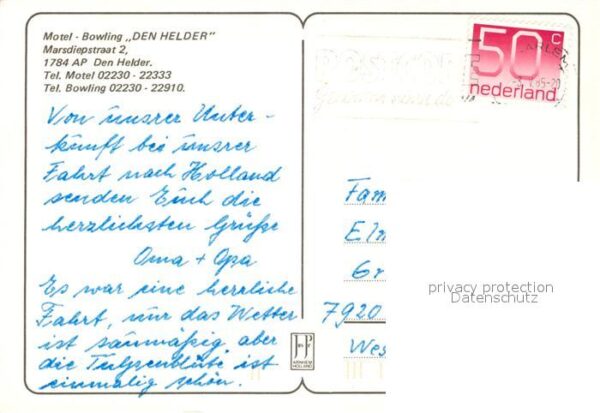 Motel - Bowling „DEN HELDER"
Marsdiepstraat 2,
1784 AP Den Helder.
Tel. Motel 02230 - 22333
Tel. Bowling 02230 - 22910.
Von unsrer Unter-
kunft bei unsrer
Fahrt nach Holland
senden Euch die
herzlichsten Grüße
Oma + Opa
Es war eine herrliche
Fahrt, nur das Wetter
ist saumäßig aber
die Tulpenblüte ist
einmalig schön.
50 c
nederland
Fam
Elm
Gr
7920
Wes
privacy protection
Datenschutz
HOLLAND